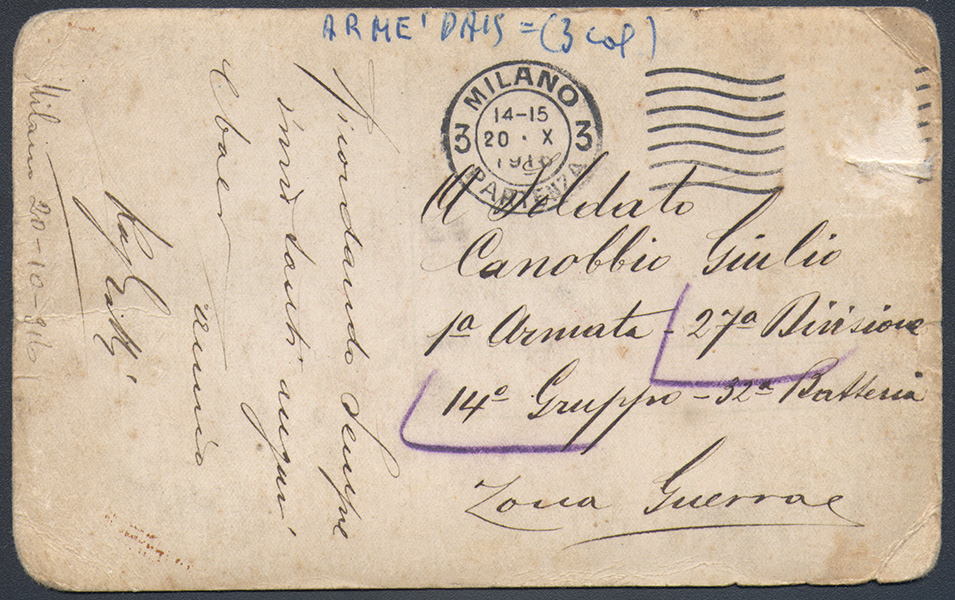 ARME' DAIS = (3 col)
MILANO
14-15
3 20 · X 3
1916
PARTENZA
Al Soldato
Canobbio Giulio
1ª Armata - 27ª Divisione
14º Gruppo - 32ª Batteria
Zona Guerra
Ricordando sempre
auguri
amico
Milano 20-10-916